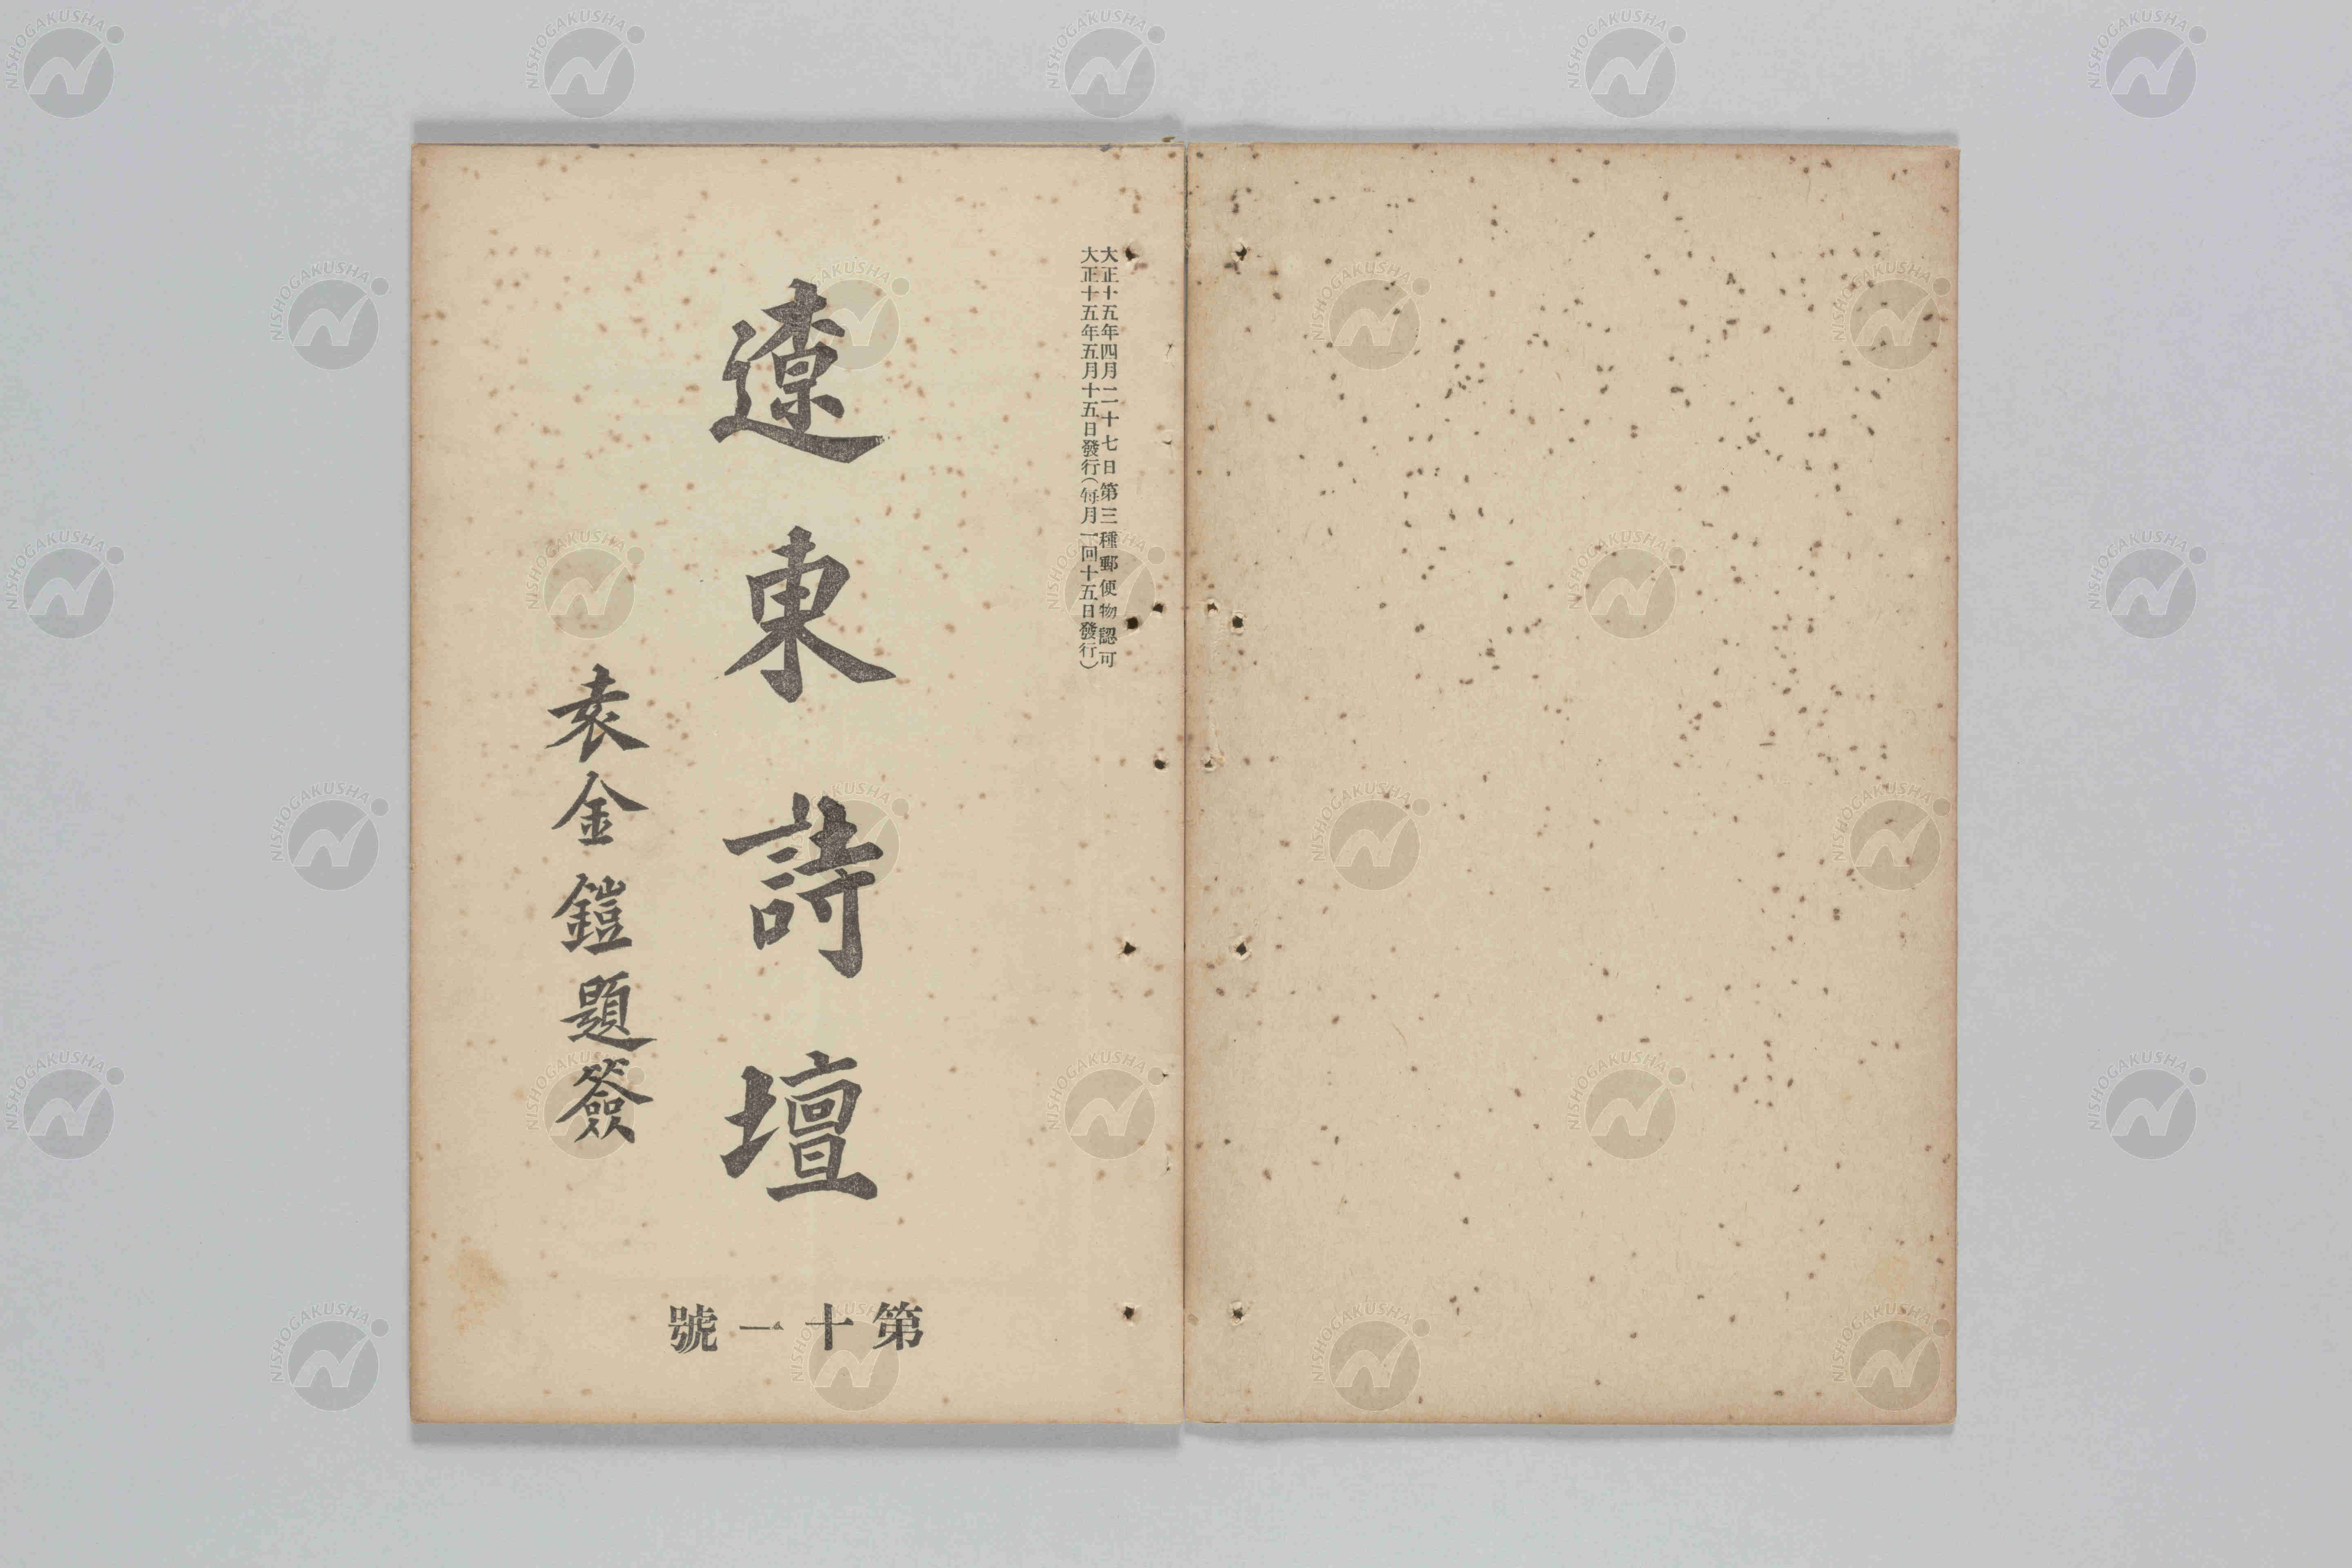 大正十五年四月二十七日第三種郵便物認可
大正十五年五月十五日發行(每月一回十五日發行)
遼東詩壇
袁金鎧題簽
第十一號
NISHOGAKUSHA